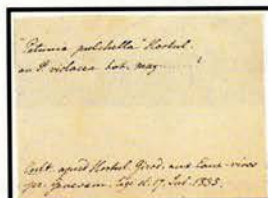 "Petunia pulchella" Hortul.
an P. violacea bot. mag. ?
Cult. apud Hortul. Girod. aux Eaux-vives
pr. Genevam. legi d. 17. Jul. 1835.